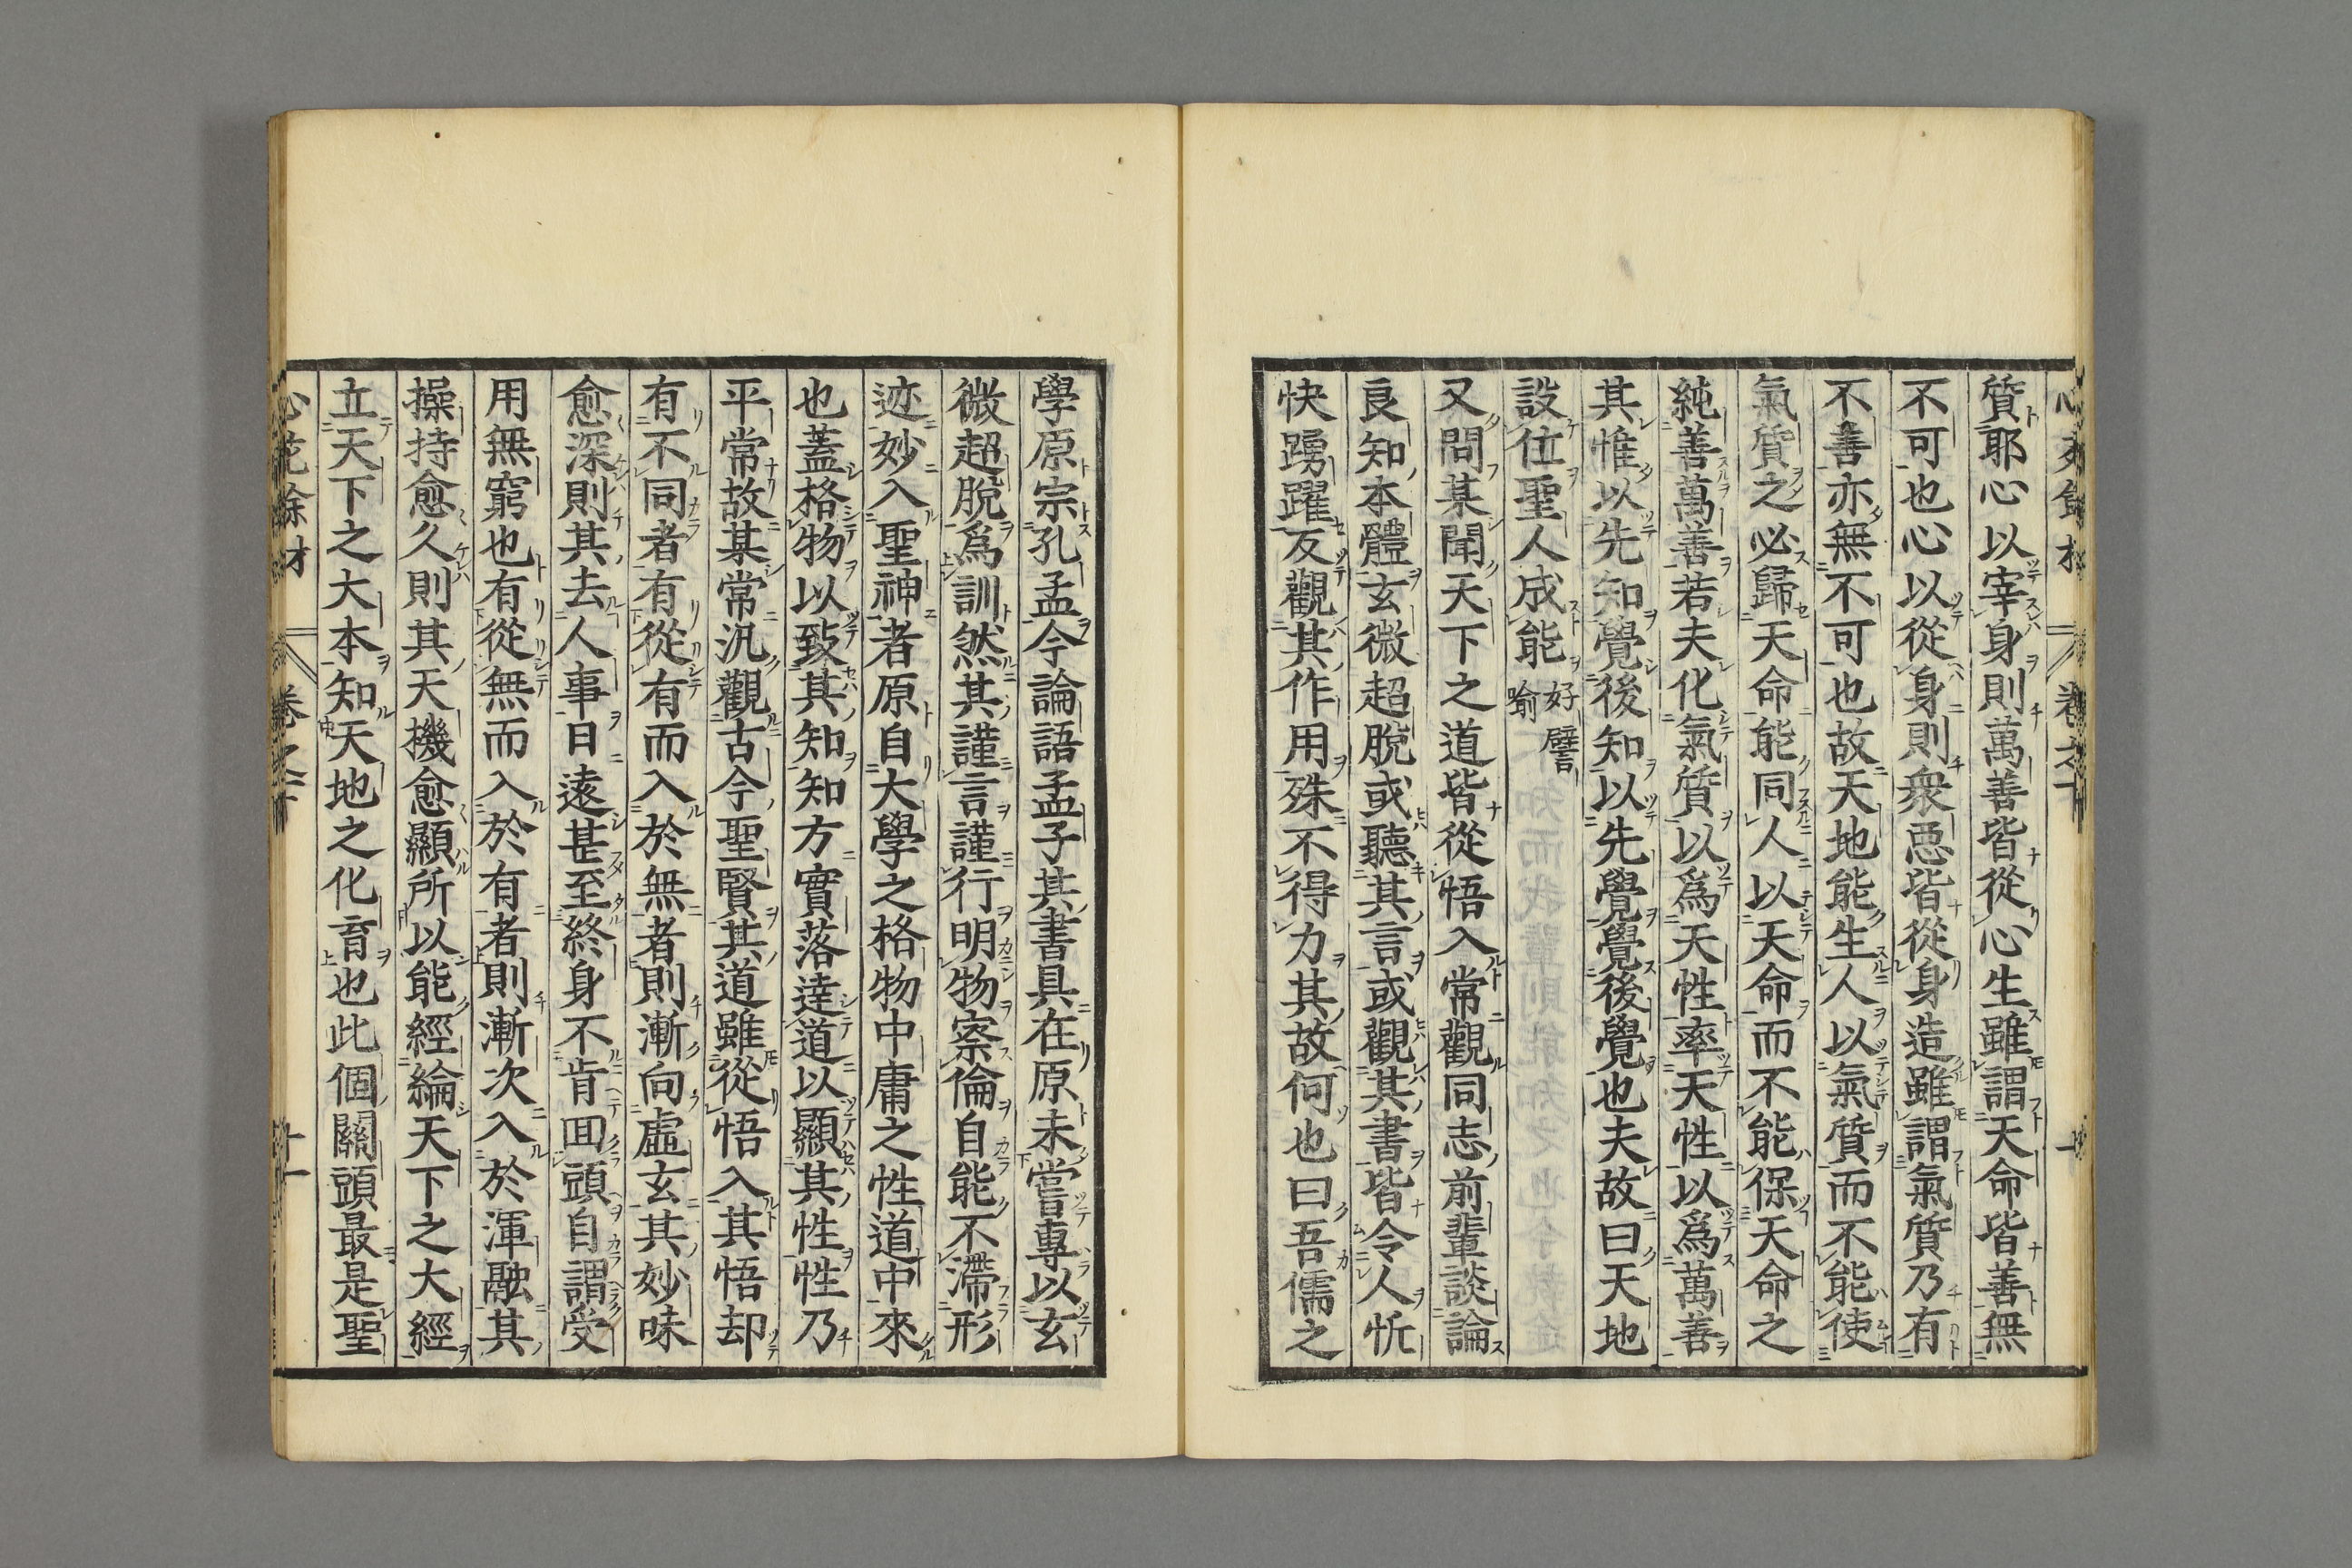 質耶心以宰身則萬善皆從心生雖謂天命皆善無
不可也心以從身則衆惡皆從身造雖謂氣質乃有
不善亦無不可也故天地能生人以氣質而不能使
氣質之必歸天命能同人以天命而不能保天命之
純善萬善若夫化氣質以爲天性率天性以爲萬善
其惟以先知覺後知以先覺覺後覺也夫故曰天地
設位聖人成能好譬喻
又問某聞天下之道皆從悟入常觀同志前輩談論
良知本體玄微超脫或聽其言或觀其書皆令人忻
快踴躍反觀其作用殊不得力其故何也曰吾儒之
學原宗孔孟今論語孟子其書具在原未嘗專以玄
微超脫爲訓然其謹言謹行明物察倫自能不滯形
迹妙入聖神者原自大學之格物中庸之性道中來
也蓋格物以致其知知方實落達道以顯其性性乃
平常故某常汎觀古今聖賢其道雖從悟入其悟却
有不同者有從有而入於無者則漸向虛玄其妙味
愈深則其去人事日遠甚至終身不肯囬頭自謂受
用無窮也有從無而入於有者則漸次入於渾融其
操持愈久則其天機愈顯所以能經綸天下之大經
立天下之大本知天地之化育也此個關頭最是聖
卷之下
十一